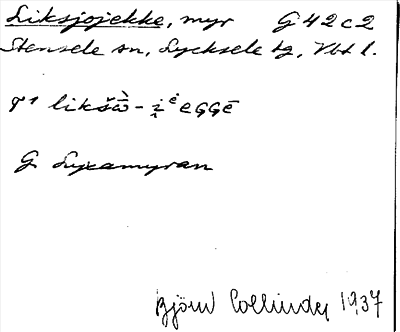 Liksjojekke, myr G 42 c 2
Stensele sn, Lycksele tg, Vbt l.
likšω̄̀ - i̯ ė eggē
G. Lyxamyran
Björn Collinder 1937